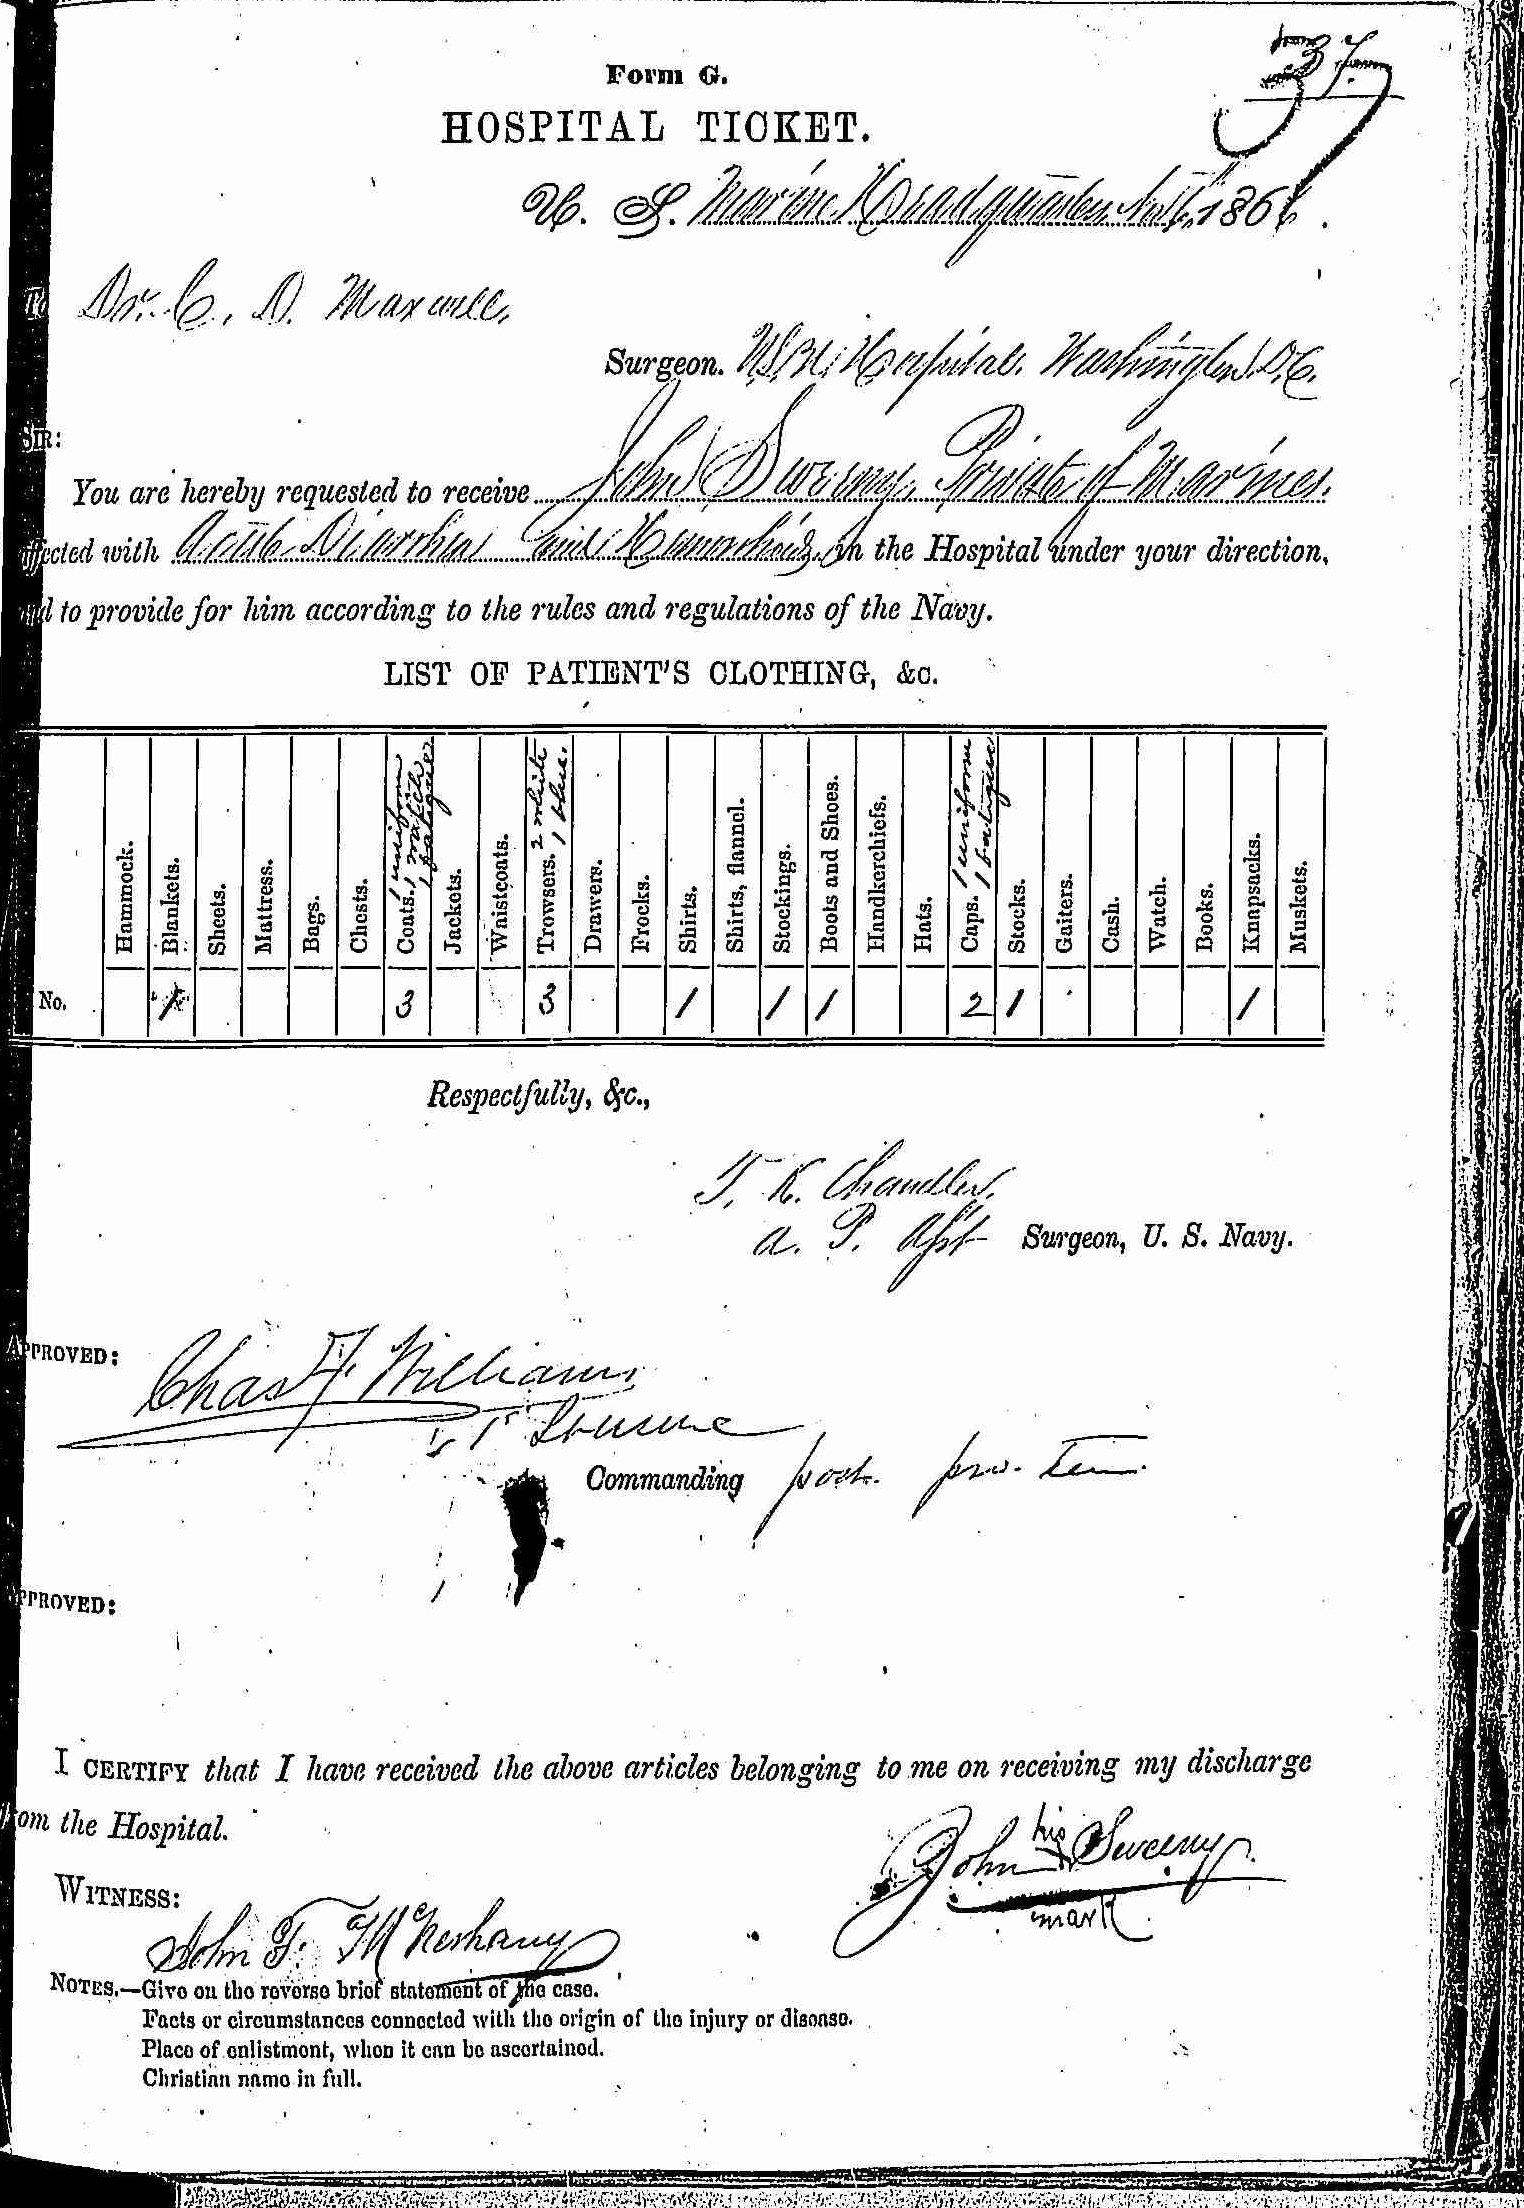 37.
Form G.
HOSPITAL TICKET.
U. S. Marine Headquarters, 1866.
To Dr. C. D. Maxwell,
Surgeon. U.S.N. Hospital. Washington D.C.
SIR:
You are hereby requested to receive John Sweeny, Private of Marines.
affected with Acute Diarrhea and Hemorrhoids. in the Hospital under your direction,
and to provide for him according to the rules and regulations of the Navy.
LIST OF PATIENT'S CLOTHING, &c.
Hammock. Blankets. Sheets. Mattress. Bags. Chests. Coats. 1 uniform 1 watch 1 fatigue Jackets. Waistcoats. Trowsers. 2 white 1 blue. Drawers. Frocks. Shirts. Shirts, flannel. Stockings. Boots and Shoes. Handkerchiefs. Hats. Caps. 1 uniform 1 fatigue Stocks. Gaiters. Cash. Watch. Books. Knapsacks. Muskets.
No. 1 3 3 1 1 1 2 1 1
Respectfully, &c.,
T. K. Chandler.
A. P. Asst Surgeon, U. S. Navy.
APPROVED: Chas F. Williams
Commanding post. pro. tem.
APPROVED:
I CERTIFY that I have received the above articles belonging to me on receiving my discharge
from the Hospital.
John his Sweeny
mark
WITNESS:
John F.
NOTES.—Give on the reverse brief statement of the case.
Facts or circumstances connected with the origin of the injury or disease.
Place of enlistment, when it can be ascertained.
Christian name in full.